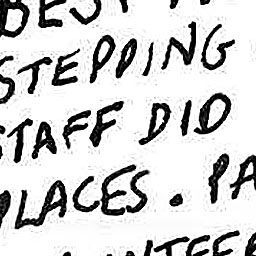 BEST
STEPPING
STAFF DID
PLACES. PA